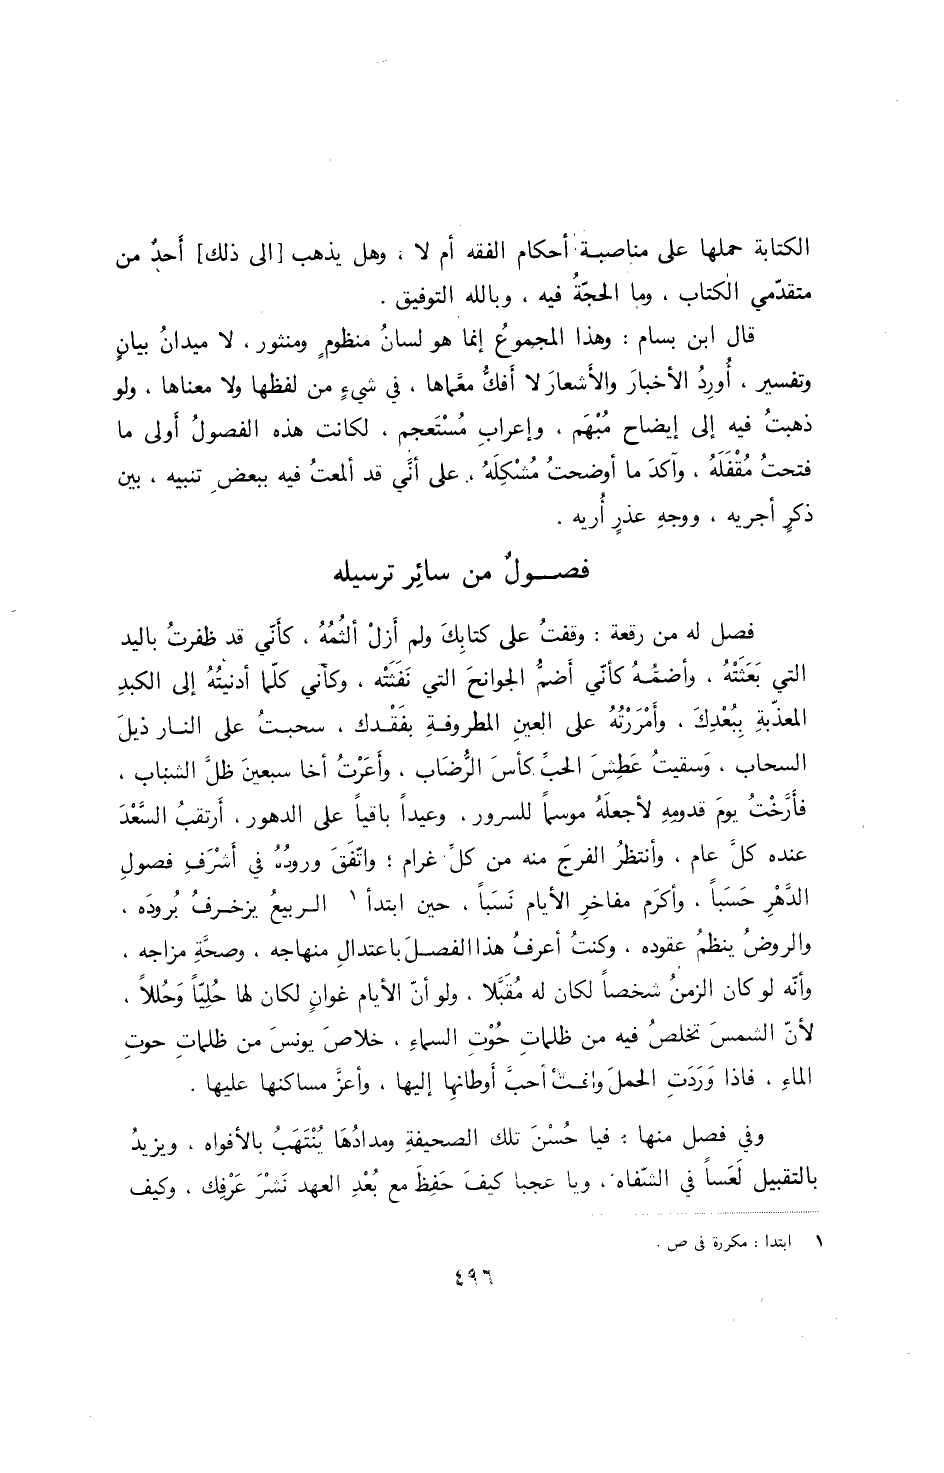 الكتابة حملها على مناصبة أحكام الفقه أم لا ، وهل يذهب [الى ذلك] أَحدٌ من
متقدّمي الكتاب ، وما الحجّةُ فيه ، وبالله التوفيق .
قال ابن بسام : وهذا المجموعُ إنما هو لسانُ منظومٍ ومنثور ، لا ميدانُ بيانٍ
وتفسير ، أُورِدُ الأخبارَ والأَشعارَ لا أَفكُّ معَّماها ، في شيءٍ من لفظها ولا معناها ، ولو
ذهبتُ فيه إلى إيضاح مُبْهَم ، وإعرابِ مُسْتَعجم ، لكانت هذه الفصولُ أولى ما
فتحتُ مُقْفَلَهُ ، وآكدَ ما أوضحتُ مُشْكِلَهُ ، على أنَّي قد ألمعتُ فيه ببعضِ تنبيه ، بين
ذكرٍ أجريه ، ووجهِ عذرٍ أُريه .
فصولٌ من سائِر ترسيله
فصل له من رقعة : وقفتُ على كتابِكَ ولم أَزلْ ألثُمُهُ ، كأَنّي قد ظفرتُ باليد
التي بَعَثَتْهُ ، وأضمُّهُ كأنّي أضمُّ الجوانحَ التي نَفَثَتْه ، وكأني كلّما أدنيتُهُ إلى الكبدِ
المعذّبةِ بِبُعْدِكَ ، وأَمْرَرْتُهُ على العينِ المطروفةِ بفَقْدك ، سحبتُ على النار ذيلَ
السحاب ، وَسقيتُ عَطِشَ الحبِّ كأسَ الرُّضَاب ، وأَعَرْتُ أخا سبعينَ ظلَّ الشباب ،
فأَرَّخْتُ يومَ قدومِهِ لأجعلَهُ موسماً للسرور ، وعيداً باقياً على الدهور ، أرتقبُ السَّعْدَ
عنده كلَّ عام ، وأنتظرُ الفرجَ منه من كلِّ غرام ؛ واتّفَقَ ورودُهُ في أَشْرَفِ فصولِ
الدَّهْرِ حَسَباً ، وأكرَم مفاخرِ الأيام نَسَباً ، حين ابتدأ ١ الربيعُ يزخرفُ بُرودَه ،
والروضُ ينظمُ عقوده ، وكنتُ أعرفُ هذا الفصلَ باعتدالِ منهاجه ، وصحَّةِ مزاجه ،
وأنّه لو كان الزمنُ شخصاً لكان له مُقَبَّلا ، ولو أنّ الأيام غوانٍ لكان لها حُلِيّاً وَحُللاً ،
لأنّ الشمسَ تخلصُ فيه من ظلماتِ حُوْتِ السماءِ ، خلاصَ يونسَ من ظلماتِ حوتِ
الماءِ ، فاذا وَرَدَتِ الحملَ وافت أحبَّ أوطانِها إليها ، وأعزَّ مساكنها عليها .
وفي فصل منها : فيا حُسْنَ تلك الصحيفةِ ومدادُهَا يُنْتَهَبُ بالأفواه ، ويزيدُ
بالتقبيل لَعَساً في الشّفاه ، ويا عجبا كيفَ حَفِظَ مع بُعْدِ العهد نَشْرَ عَرْفِك ، وكيف
١ ابتدا : مكررة في ص .
٤٩٦